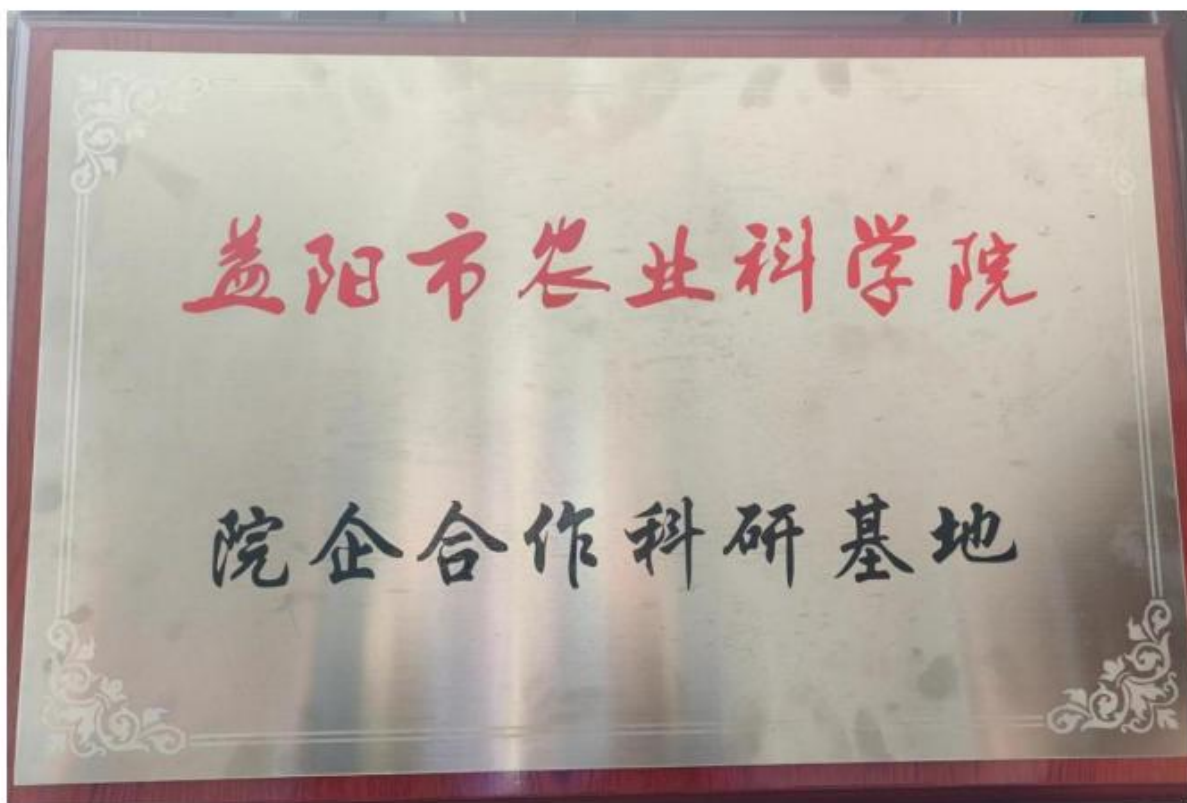 益阳市农业科学院
院企合作科研基地